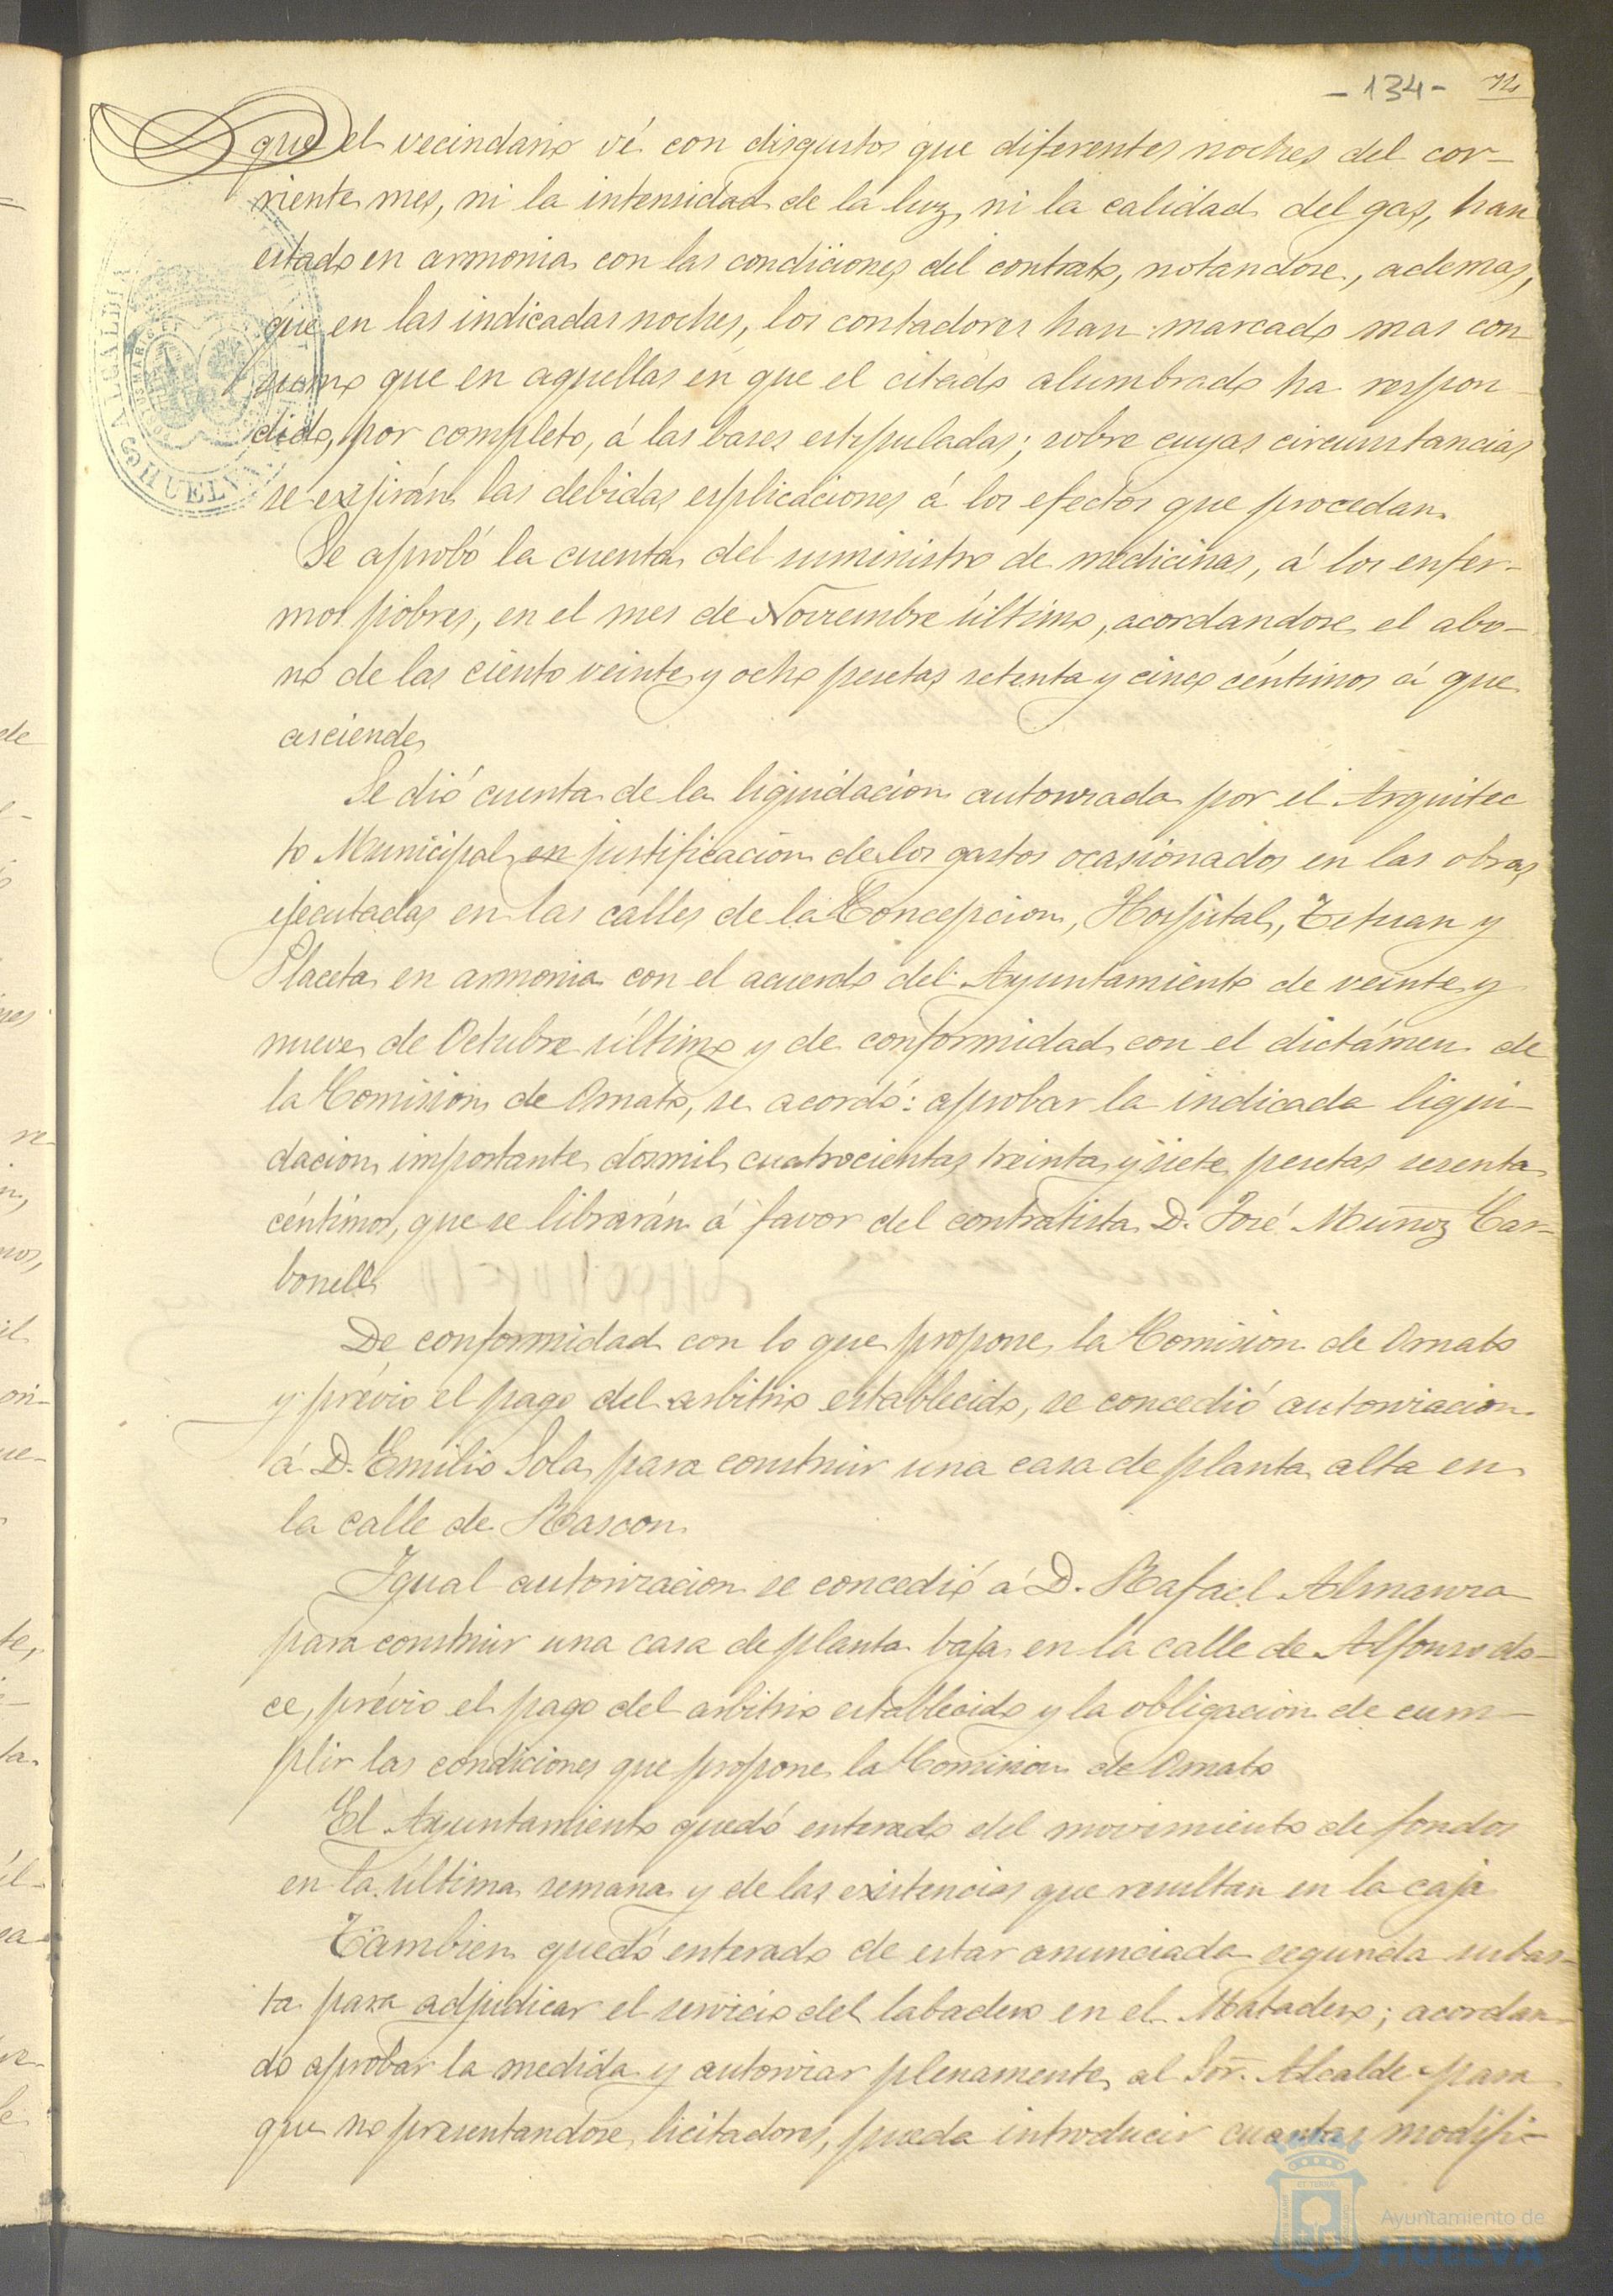 - 134 -
que el vecindario vé con disgustos que diferentes noches del cor-
riente mes, ni la intensidad de la luz, ni la calidad del gas, han
estado en armonia con las condiciones del contrato, notandose, ademas,
que en las indicadas noches, los contadores han marcado mas con
sumo que en aquellas en que el citado alumbrado ha respon
dido, por completo, á las bases estipuladas; sobre cuyas circunstancias
se exijirán las debidas esplicaciones á los efectos que procedan.
Se aprobó la cuenta del suministro de medicinas, á los enfer-
mos pobres, en el mes de Noviembre último, acordandose el abo-
no de las ciento veinte y ocho pesetas setenta y cinco céntimos á que
asciende
Se dió cuenta de la liquidacion autorizada por el Arquitec
to Municipal en justificacion de los gastos ocasionados en las obras
ejecutadas en las calles de la Concepcion, Hospital, Tetuan y
Placeta en armonia con el acuerdo del Ayuntamiento de veinte y
nueve de Octubre último y de conformidad con el dictámen de
la Comision de Ornato, se acordó: aprobar la indicada liqui-
dacion importante dosmil cuatrocientas treinta y siete pesetas sesenta
céntimos, que se librarán á favor del contratista D. José Muñoz Car-
bonell
De conformidad con lo que propone la Comision de Ornato
y prévio el pago del arbitrio establecido, se concedió autorizacion
á D. Emilio Sola para construir una casa de planta alta en
la calle de Rascon
Igual autorizacion se concedió á D. Rafael Almansa
para construir una casa de planta baja en la calle de Alfonso do-
ce, prévio el pago del arbitrio establecido y la obligacion de cum-
plir las condiciones que propone la Comision de Ornato
El Ayuntamiento quedó enterado del movimiento de fondos
en la última semana y de las existencias que resultan en la caja
Tambien quedó enterado de estar anunciada segunda subas-
ta para adjudicar el servicio del labadero en el Matadero; acordan-
do aprobar la medida y autorizar plenamente al Sor. Alcalde para
que no presentandose licitadores, pueda introducir cuantas modifi-
ALCALDIA
HUELVA
Ayuntamiento de
HUELVA